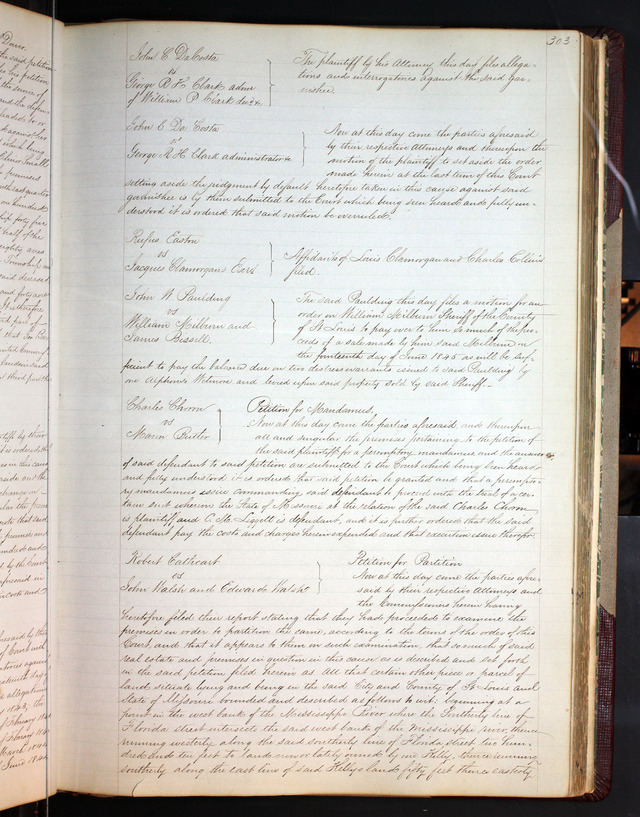 303
John C DaCosta
vs
George R H Clark admr
of William P Clark decd &c
The plaintiff by his Attorney this day files allega-
tions and interrogatories against the said Gar-
nishee.
John C Da Costa
vs
George R H Clark administrator &c
Now at this day come the parties aforesaid
by their respective Attorneys and thereupon the
motion of the plaintiff to set aside the order
made herein at the last term of this Court
setting aside the judgment by default heretofore taken in this cause against said
garnishee is by them submitted to the Court which being seen heard and fully un-
derstood it is ordered that said motion be overruled.
Rufus Easton
vs
Jacques Clamorgans Exrs
Affidavits of Louis Clamorgan and Charles Collins
filed.
John W Paulding
vs
William Milburn and
James Bissell.
The said Paulding this day files a motion for an
order on William Milburn Sheriff of the County
of St Louis to pay over to him so much of the pro-
ceeds of a sale made by him said Milburn on
the fourteenth day of June 1845 as will be suf-
ficient to pay the balance due on two distress warrants issued to said Paulding by
one Alphonso Wetmore and levied upon said property sold by said Sheriff-
Charles Chrom
vs
Marin Butler
Petition for Mandamus,
Now at this day come the parties aforesaid and thereupon
all and singular the premises pertaining to the petition of
the said plaintiff for a peremptory mandamus and the answer
of said defendant to said petition are submitted to the Court which being seen heard
and fully understood it is ordered that said petition be granted and that a peremp-
tory mandamus issue commanding said defendant to proceed unto the trial of a cer-
tain suit wherein the State of Missouri at the relation of the said Charles Chrom
is plaintiff and C. M. Lipott is defendant, and it is further ordered that the said
defendant pay the costs and charges herein expended and that execution issue therefor.
Robert Cathcart
vs
John Walsh and Edward Walsh
Petition for Partition
Now at this day come the parties afore-
said by their respective Attorneys and
the Commissioners herein having
heretofore filed their report stating that they had proceeded to examine the
premises in order to partition the same, according to the terms of the order of this
Court, and that it appears to them on such examination, that so much of said
real estate and premises in question in this cause as is described and set forth
in the said petition filed herein as All that certain other piece or parcel of
land situate lying and being in the said City and County of St Louis and
State of Missouri bounded and described as follows to wit: beginning at a
point in the west bank of the Mississippi River where the Southerly line of
Florida street intersects the said west bank of the Mississippi river, thence
running westerly along the said southerly line of Florida street two hun-
dred and ten feet to land now or lately owned by one Kelly, thence running
southerly along the east line of said Kellys land fifty feet thence easterly